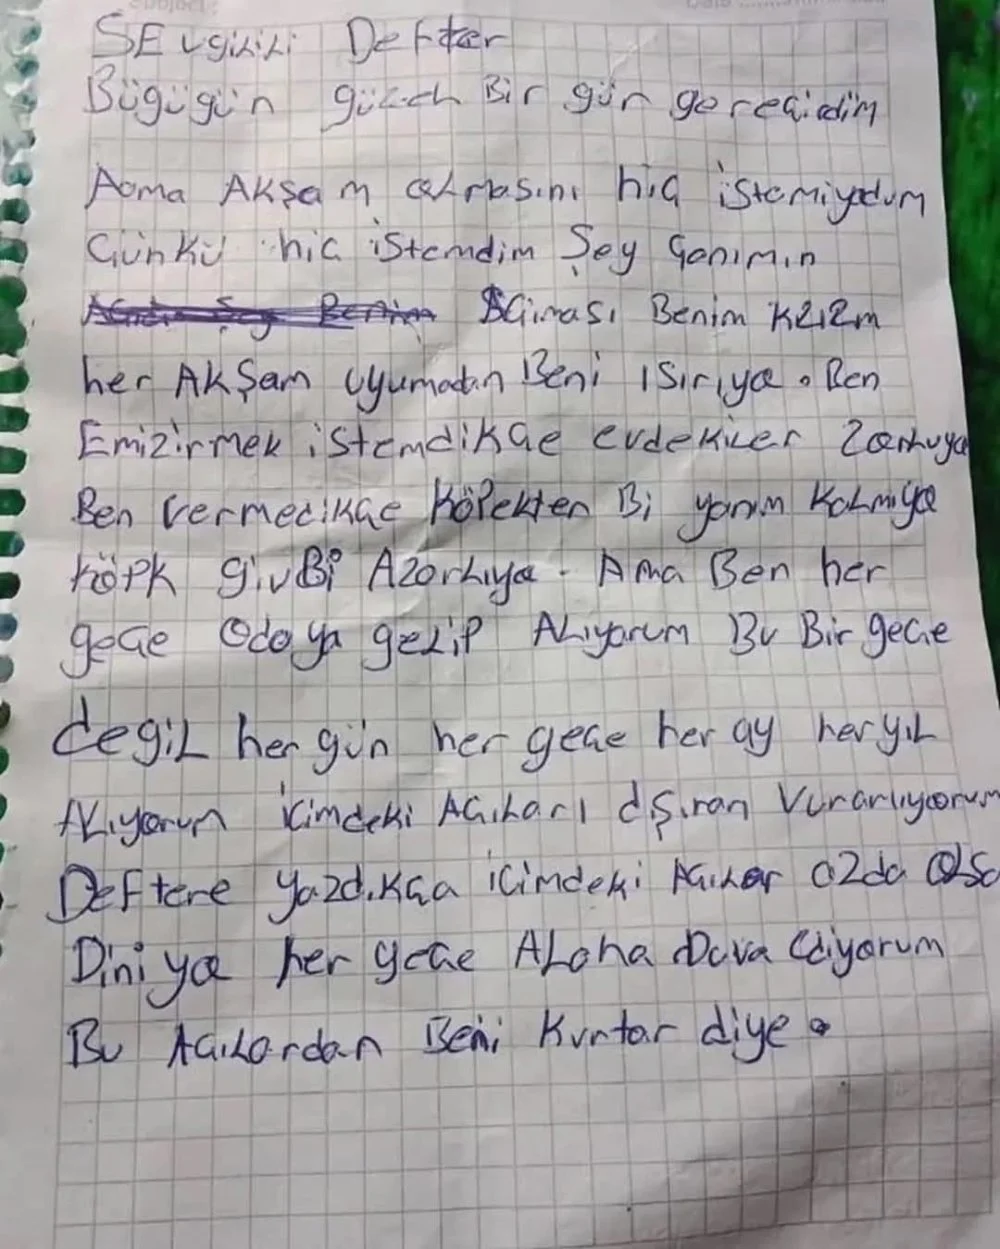 SEvgilili Defter
Bügügün gücel Bir gün gereçidim
Aoma AKşam olmasını hiç istemiyodum
Günkü hic istemdim Şey Ganımın
Acıması Benim Kızım
her AKŞam Uyumadan Beni ısırıya. Ben
Emizirmek istemdikçe evdekiler Zorluya
Ben vermedikçe Köpekten Bi yanım Kalmıya
Köpk givBi Azarlıya. Ama Ben her
geçe Odaya gelip Alıyorum Bu Bir gece
değil her gün her geçe her ay her yıl
Alıyorum içimdeki Acıları dışıran Vurarlıyorum
Deftere yazdıkça içimdeki Acılar azda Olsa
Diniya her geçe Alaha Duva Ediyorum
Bu Acılardan Beni Kurtar diye.